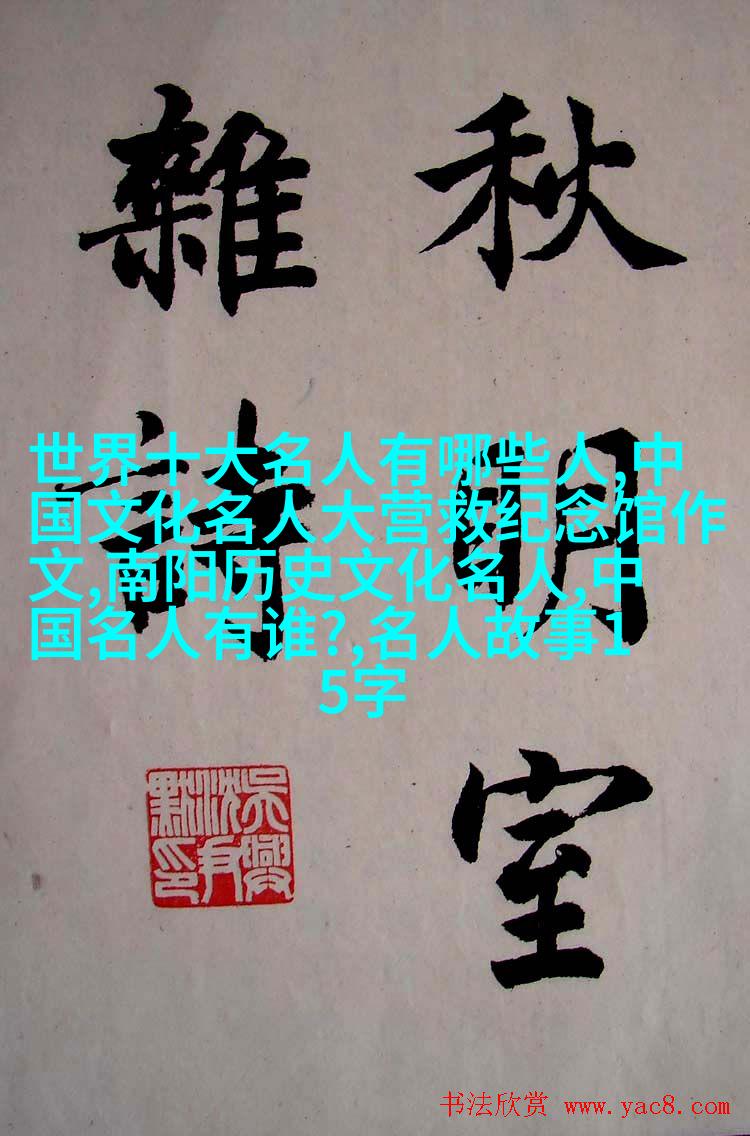 秋明室
雜詩
世界十大名人有哪些人,中
国文化名人大营救纪念馆作
文,南阳历史文化名人,中
国名人有谁?,名人故事1
5字
吳興
沈尹
默印
书法欣赏 www.yac8.com